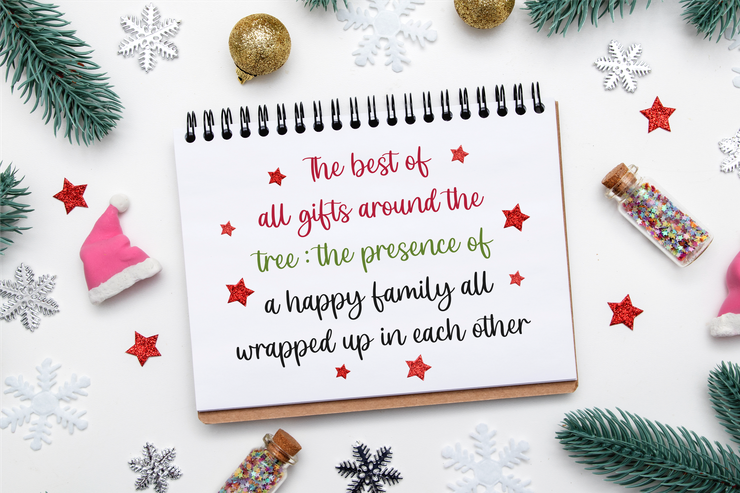 The best of
all gifts around the
tree : the presence of
a happy family all
wrapped up in each other